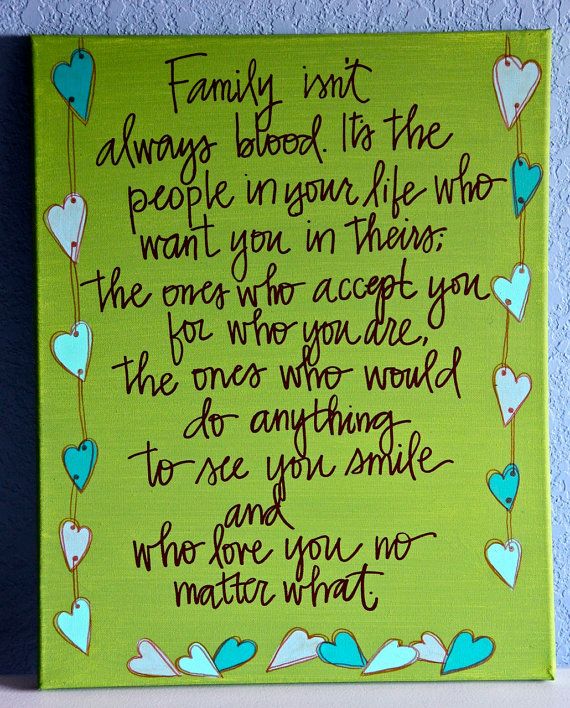 Family isn't
always blood. It's the
people in your life who
want you in theirs;
the ones who accept you
for who you are,
the ones who would
do anything
to see you smile
and
who love you no
matter what.